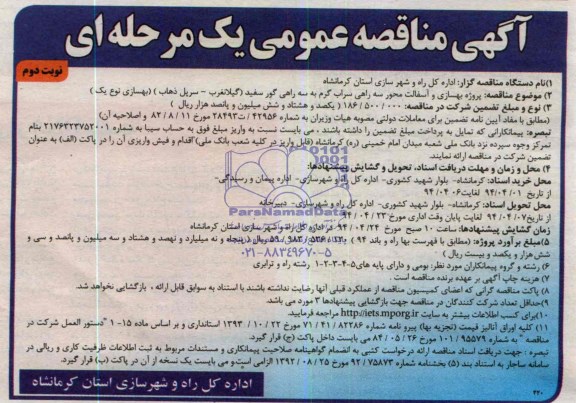 آگهی مناقصه عمومی یک مرحله ای
نوبت دوم
۱)نام دستگاه مناقصه گزار: اداره کل راه و شهر سازی استان کرمانشاه
۲) موضوع مناقصه: پروژه بهسازی و آسفالت محور سه راهی سراب گرم به سه راهی گور سفید (گیلانغرب - سرپل ذهاب ) (بهسازی نوع یک )
۳) نوع و مبلغ تضمین شرکت در مناقصه: ۱۸۶/۵۰۰/۰۰۰ ( یکصد و هشتاد و شش میلیون و پانصد هزار ریال )
(مطابق با مفاد آیین نامه تضمین برای معاملات دولتی مصوبه هیات وزیران به شماره ۴۲۹۵۶/ت۲۸۴۹۳ مورخ ۸۲/۸/۱۱ و اصلاحیه آن)
تبصره: پیمانکارانی که تمایل به پرداخت مبلغ تضمین را داشته باشند ، می بایست نسبت به واریز مبلغ فوق به حساب سیبا به شماره ۲۱۷۶۲۳۲۷۵۲۰۰۱ بنام
تمرکز وجوه سپرده نزد بانک ملی شعبه میدان امام خمینی (ره) کرمانشاه (قابل واریز در کلیه شعب بانک ملی) اقدام و فیش واریزی آن را در پاکت (الف) به عنوان
تضمین شرکت در مناقصه ارائه نمایند.
۴) محل و زمان و مهلت دریافت اسناد، تحویل و گشایش پیشنهادها:
محل خرید اسناد: کرمانشاه- بلوار شهید کشوری- اداره کل راه و شهرسازی- اداره پیمان و رسیدگی-
از تاریخ ۹۴/۰۴/۰۱ لغایت ۹۴/۰۴/۰۶
محل تحویل اسناد: کرمانشاه- بلوار شهید کشوری- اداره کل راه و شهرسازی- دبیرخانه
از تاریخ ۹۴/۰۴/۰۷ لغایت پایان وقت اداری مورخ ۹۴/۰۴/۲۳
زمان گشایش پیشنهادها: ساعت ۱۰ صبح مورخ ۹۴/۰۴/۲۴ در اداره کل راه و شهرسازی استان کرمانشاه
۵)مبلغ برآورد پروژه: (مطابق با فهرست بها راه و باند ۹۴ ) میلیارد و نهصد و هشتاد و سه میلیون و پانصد و سی و
شش هزار و یکصد و بیست ریال )
۶) رشته و گروه پیمانکاران مورد نظر: بومی و دارای پایه های۵-۴-۳-۲-۱ رشته راه و ترابری
۷) هزینه چاپ آگهی بر عهده برنده مناقصه است.
۸) پاکت مناقصه گرانی که اعضای کمیسیون مناقصه از عملکرد قبلی آنها رضایت نداشته باشند با استناد به سوابق قابل ارائه ، بازگشایی نخواهد شد.
۹)حداقل تعداد شرکت کنندگان در مناقصه جهت بازگشایی پیشنهادها ۳ مورد می باشد.
۱۰)برای کسب اطلاعات بیشتر به سایت http://iets.mporg.ir مراجعه فرمایید.
۱۱) کلیه اوراق آنالیز قیمت (تجزیه بها) پیرو نامه شماره ۷۱/۴۱/۸۲۲۸۶ مورخ ۱۳۹۳/۱۰/۲۲ استانداری و بر اساس ماده ۱۵-۱ "دستور العمل شرکت در
مناقصه " به شماره ۱۰۱/۹۵۵۷۹ مورخ ۸۴/۰۵/۲۶ می بایست داخل پاکت (ج) قرار گیرد.
تبصره : جهت دریافت اسناد مناقصه ارائه درخواست کتبی به انضمام گواهینامه صلاحیت پیمانکاری و مستندات مربوط به ثبت اطلاعات ظرفیت کاری و ریالی در
سامانه ساجار به استناد بند (۵) بخشنامه شماره ۹۲/۷۵۸۷۳ مورخ ۱۳۹۲/۰۸/۲۵ الزامی است و می بایست یک نسخه از آن در پاکت (ب) قرار گیرد.
اداره کل راه و شهرسازی استان کرمانشاه
۳۲۰
ParsNamadData
۰۲۱-۸۸۳۴۹۶۷۰-۵